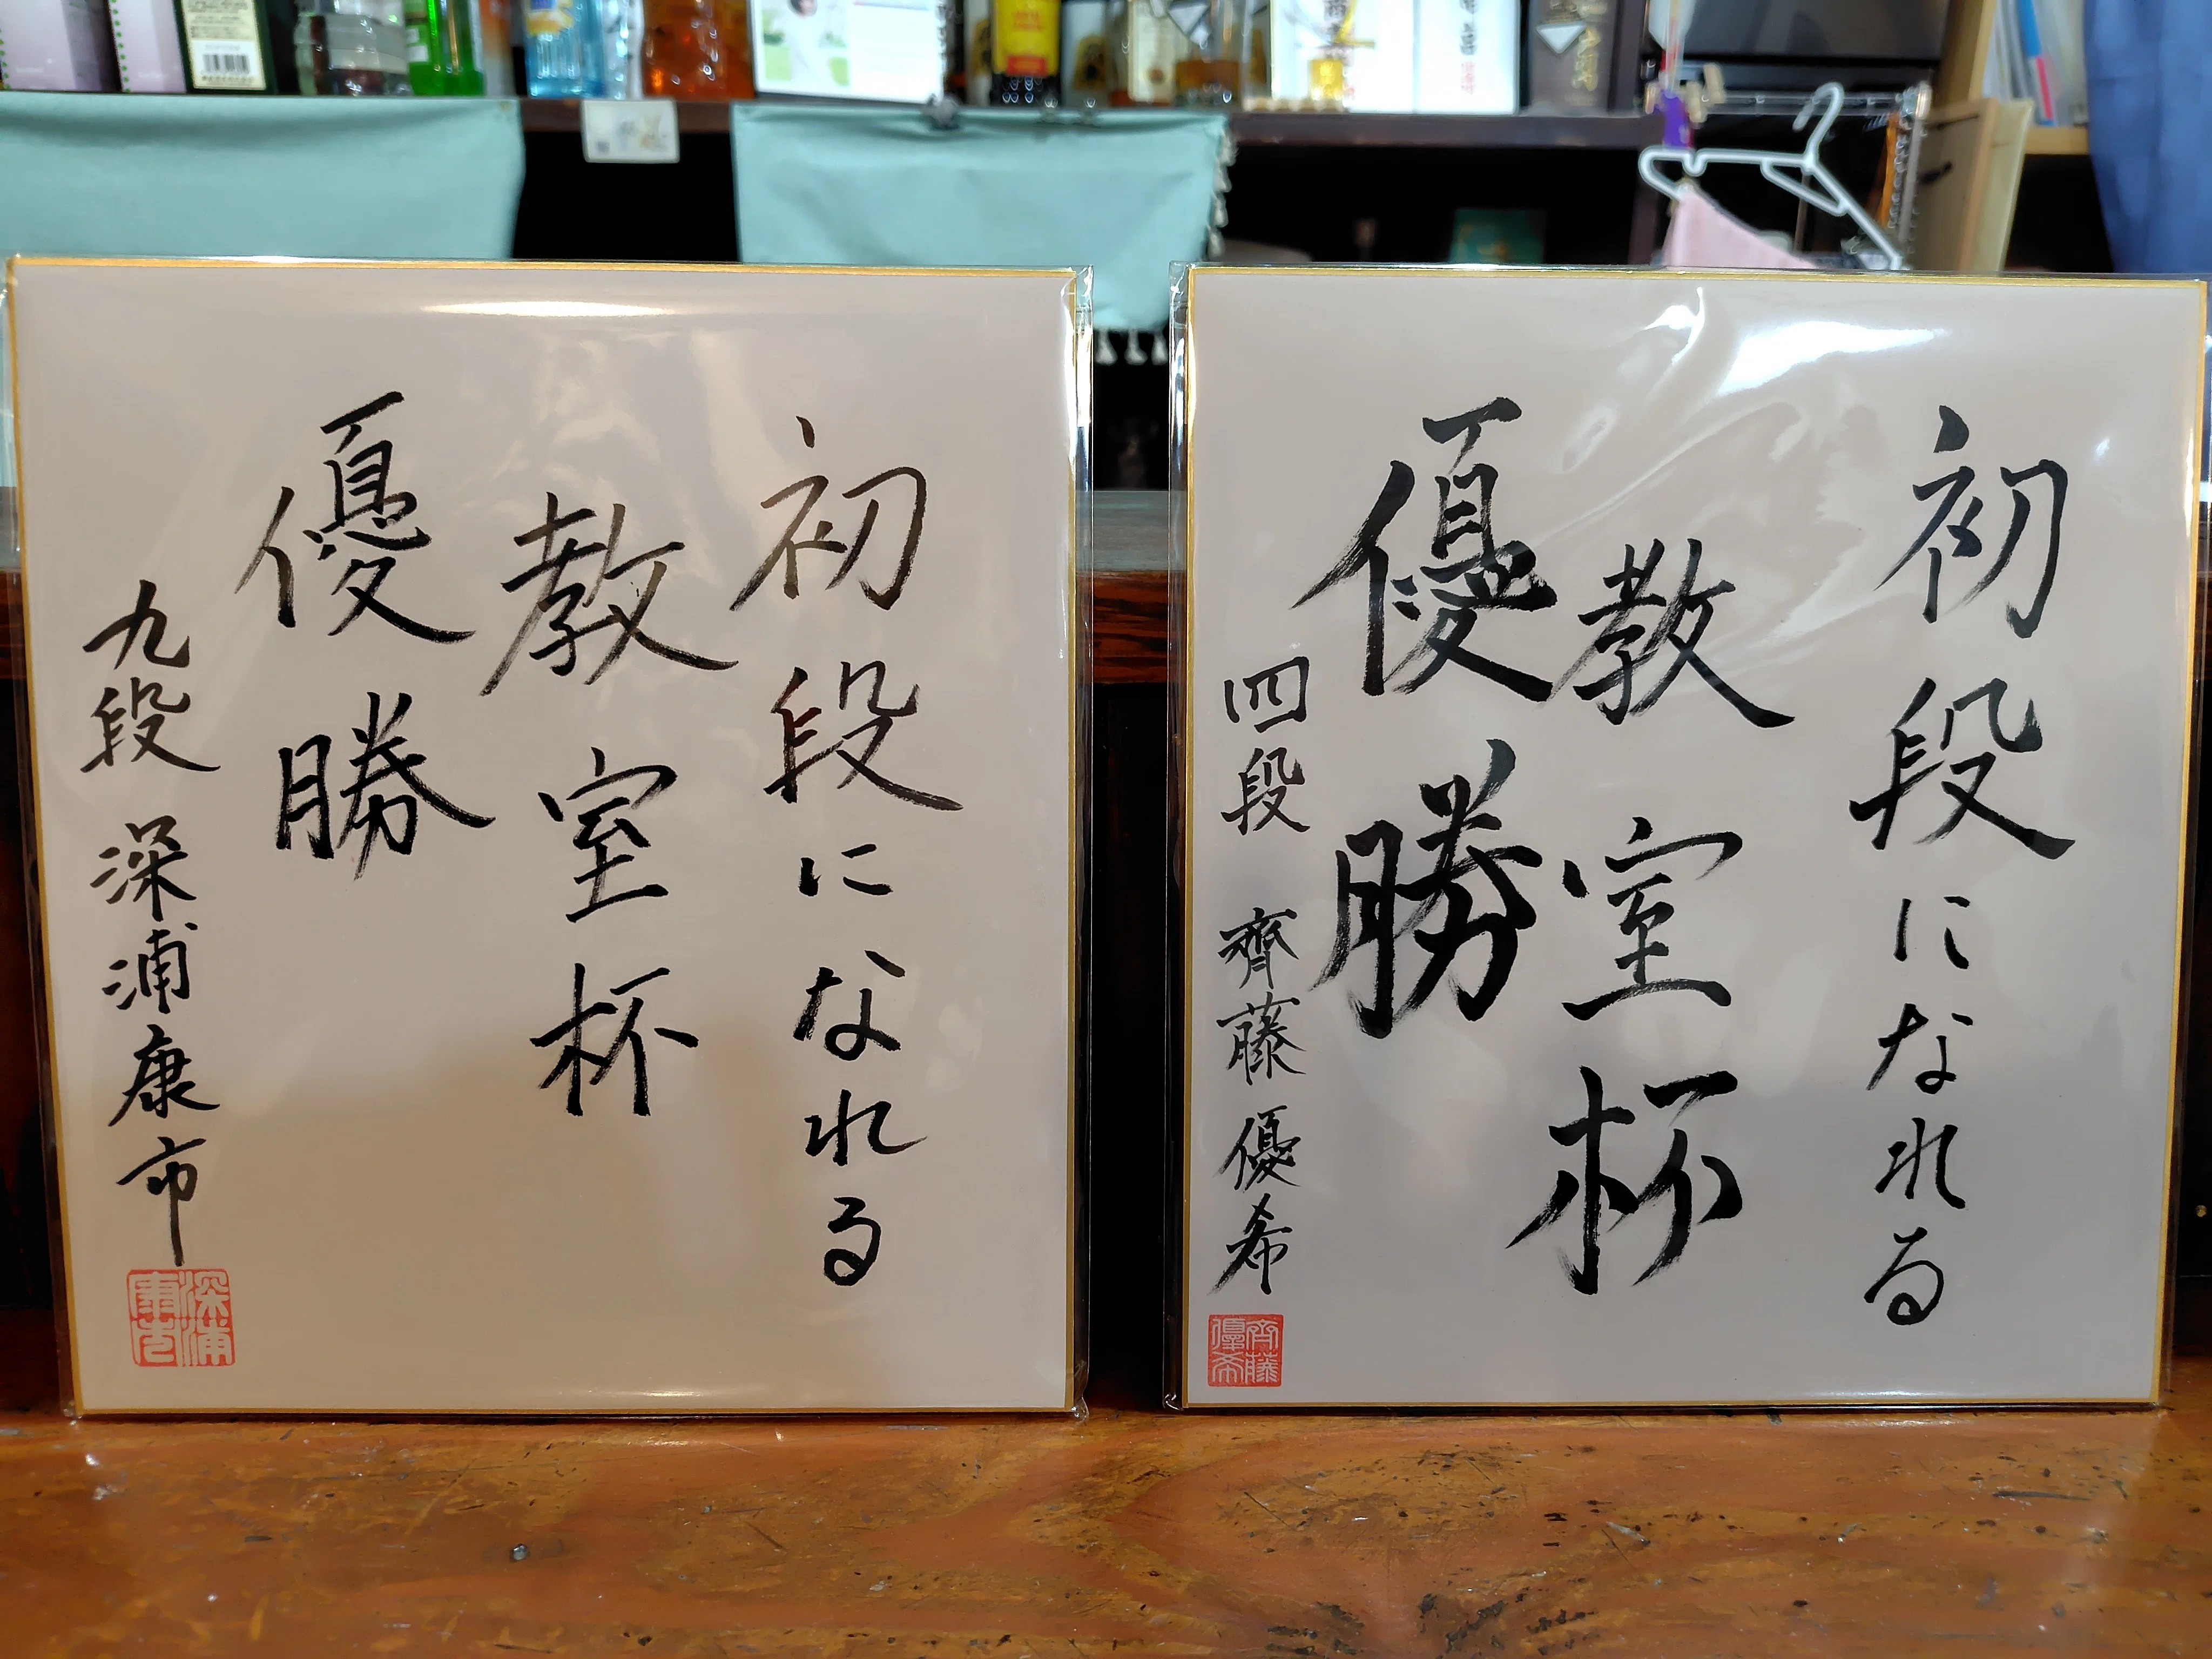 初段になれる
教室杯
優勝
九段 深浦康市
深浦
康市
初段になれる
教室杯
優勝
四段 齊藤優希
齊藤
優希